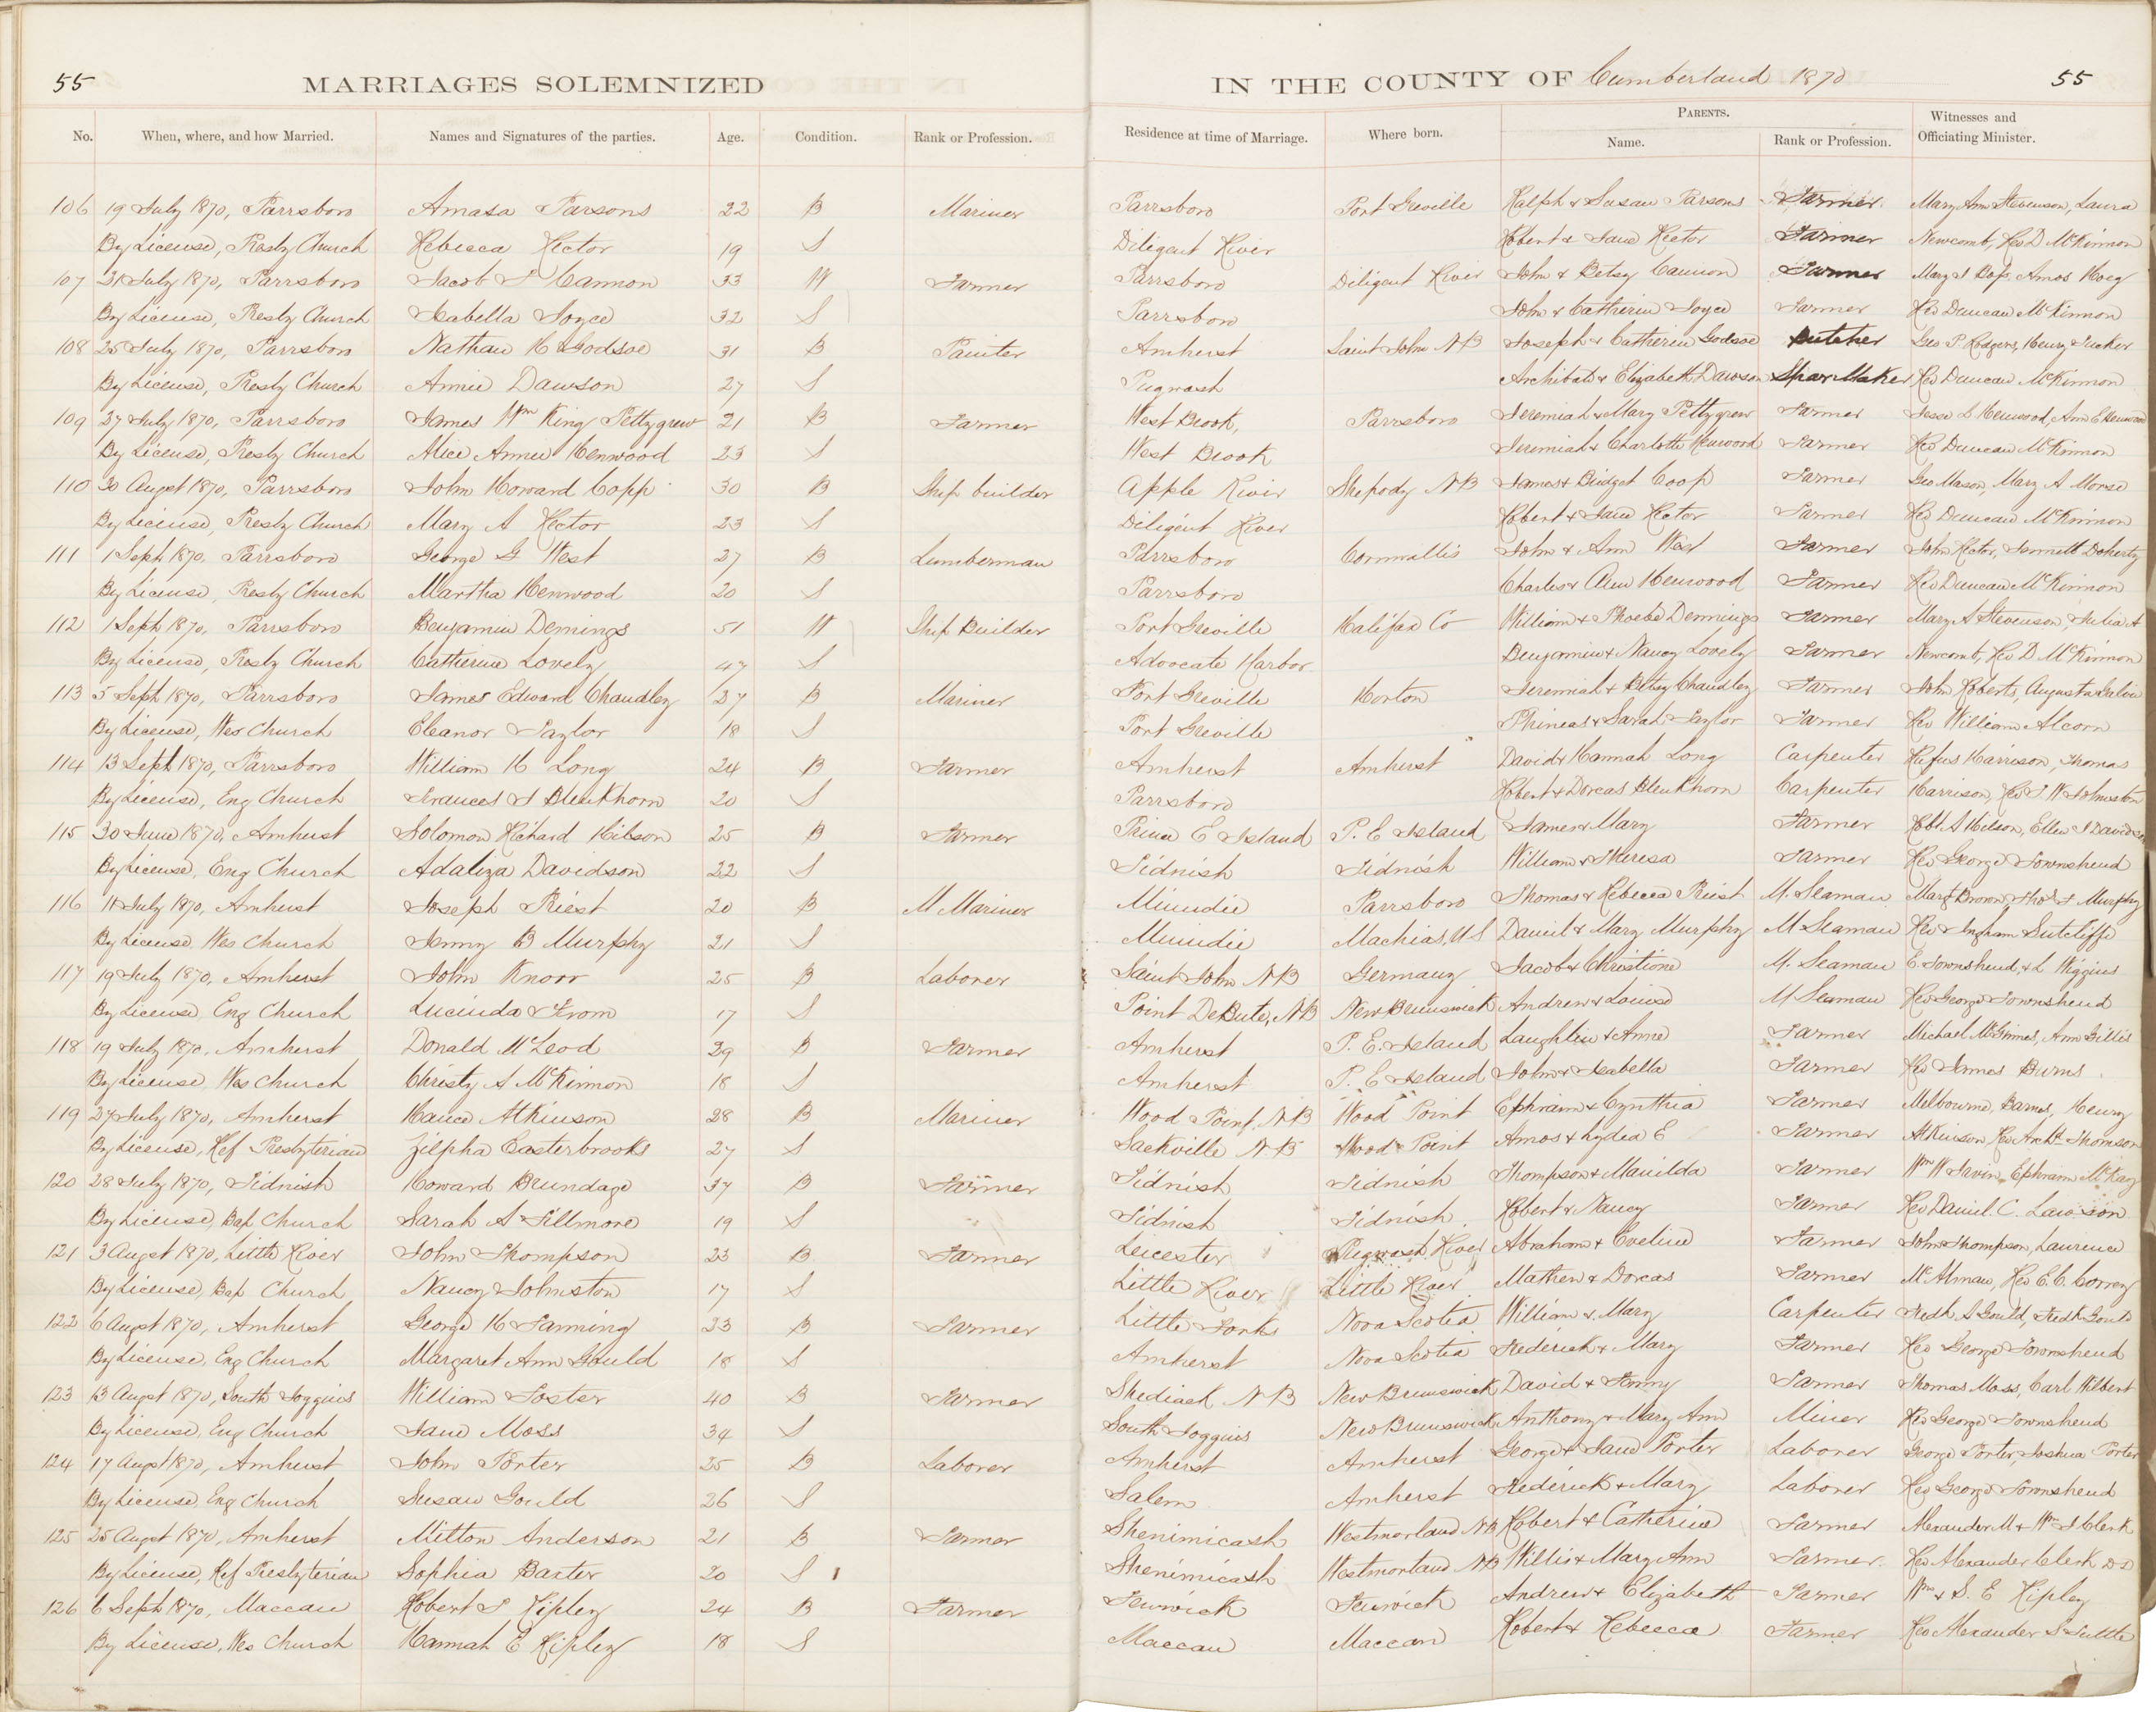 55 MARRIAGES SOLEMNIZED IN THE COUNTY OF Cumberland 1870 55
No. When, where, and how Married. Names and Signatures of the parties. Age. Condition. Rank or Profession. Residence at time of Marriage. Where born. PARENTS. Name. Rank or Profession. Witnesses and Officiating Minister.
106 19 July 1870, Parrsboro Amasa Parsons 22 B Mariner Parrsboro Port Greville Ralph & Susan Parsons Farmer Mary Ann Stevenson, Laura
By License, Presby Church Rebecca Rector 19 S Diligent River Robert & Jane Rector Farmer Newcomb, Rev D McKinnon
107 21 July 1870, Parrsboro Jacob S Cannon 33 W Farmer Parrsboro Diligent River John & Betsy Cannon Farmer Mary J Amos Hoeg
By License, Presby Church Isabella Joyce 32 S Parrsboro John & Catherine Joyce Farmer Rev Duncan McKinnon
108 25 July 1870, Parrsboro Nathan H Godsoe 31 B Painter Amherst Saint John NB Joseph & Catherine Godsoe Butcher Geo P Rodgers, Henry Tucker
By License, Presby Church Annie Dawson 27 S Pugwash Archibald & Elizabeth Dawson Spar Maker Rev Duncan McKinnon
109 27 July 1870, Parrsboro James Wm King Pettygrew 21 B Farmer West Brook, Parrsboro Jeremiah & Mary Pettygrew Farmer Jesse L Henwood, Ann E Henwood
By License, Presby Church Alice Annie Henwood 23 S West Brook Jeremiah & Charlotte Henwood Farmer Rev Duncan McKinnon
110 30 Augst 1870, Parrsboro John Howard Copp 30 B Ship builder Apple River Shepody NB James & Bridget Coop Farmer Geo Mason, Mary A Morse
By License, Presby Church Mary A Rector 23 S Diligent River Robert & Jane Rector Farmer Rev Duncan McKinnon
111 1 Sept 1870, Parrsboro George G West 27 B Lumberman Parrsboro Cornwallis John & Ann West Farmer John Rector, Jannett Doherty
By License, Presby Church Martha Henwood 20 S Parrsboro Charles & Ann Henwood Farmer Rev Duncan McKinnon
112 1 Sept 1870, Parrsboro Benjamin Demings 51 W Ship Builder Port Greville Halifax Co William & Phoebe Demmings Farmer Mary A Stevenson, Julia A
By License, Presby Church Catherine Lovely 47 S Advocate Harbor Benjamin & Nancy Lovely Farmer Newcomb, Rev D McKinnon
113 5 Sept 1870, Parrsboro James Edward Chandley 27 B Mariner Port Greville Horton Jeremiah & Betsy Chandley Farmer John Roberts, Augusta
By License, Wes Church Eleanor Taylor 18 S Port Greville Phineas & Sarah Taylor Farmer Rev William Alcorn
114 13 Sept 1870, Parrsboro William H Long 24 B Farmer Amherst Amherst David & Hannah Long Carpenter Rufus Harrison, Thomas
By License, Eng Church Frances J Blenkhorn 20 S Parrsboro Robert & Dorcas Blenkhorn Carpenter Harrison, Rev J W Johnston
115 30 June 1870, Amherst Solomon Richard Hibson 25 B Farmer Prince E Island P. E Island James & Mary Farmer Robt A Hilson, Ellen J Davidson
By License, Eng Church Adaliza Davidson 22 S Tidnish Tidnish William & Theresa Farmer Rev George Townshend
116 11 July 1870, Amherst Joseph Priest 20 B M Mariner Minudie Parrsboro Thomas & Rebecca Priest M. Seaman Margt Brown, Thos J Murphy
By License, Wes Church Jenny B Murphy 21 S Minudie Machias, US Daniel & Mary Murphy M Seaman Rev Ingham Sutcliffe
117 19 July 1870, Amherst John Knorr 25 B Laborer Saint John NB Germany Jacob & Christione M. Seaman E. Townshend, & L Wiggins
By License, Eng Church Lucinda From 17 S Point DeBute, NB New Brunswick Andrew & Louisa M Seaman Rev George Townshend
118 19 July 1870, Amherst Donald McLeod 29 B Farmer Amherst P. E. Island Laughlin & Annie Farmer Michael McGinnes, Ann Gillis
By License, Wes Church Christy A McKinnon 18 S Amherst P. E Island John & Isabella Farmer Rev James Burns
119 27 July 1870, Amherst Hance Atkinson 28 B Mariner Wood Point, NB Wood Point Ephraim & Cynthia Farmer Melbourne, Barnes, Henry
By License, Ref Presbyterian Zilpha Easterbrooks 27 S Sackville NB Wood Point Amos & Lydia E Farmer Atkinson, Rev Archd Thomson
120 28 July 1870, Tidnish Howard Brundage 37 B Farmer Tidnish Tidnish Thompson & Manilda Farmer Wm W Irvin, Ephraim McKay
By License, Bap Church Sarah A Fillmore 19 S Tidnish Tidnish Robert & Nancy Farmer Rev Daniel. C. Lawson
121 3 Augst 1870, Little River John Thompson 23 B Farmer Leicester Pugwash River Abraham & Eveline Farmer John Thompson, Laurence
By License, Bap Church Nancy Johnston 17 S Little River Little River Mathew & Dorcas Farmer McAlman, Rev E. C. Correy
122 6 Augst 1870, Amherst George H Fanning 23 B Farmer Little Forks Nova Scotia William & Mary Carpenter Fredk A Gould, Fredk Gould
By License, Eng Church Margaret Ann Gould 18 S Amherst Nova Scotia Frederick & Mary Farmer Rev George Townshend
123 13 Augst 1870, South Joggins William Foster 40 B Farmer Shediack NB New Brunswick David & Fanny Farmer Thomas Moss, Carl Hilbert
By License, Eng Church Jane Moss 34 S South Joggins New Brunswick Anthony & Mary Ann Miner Rev George Townshend
124 17 Augst 1870, Amherst John Porter 25 B Laborer Amherst Amherst George & Jane Porter Laborer George Porter, Joshua Porter
By License, Eng Church Susan Gould 26 S Salem Amherst Frederick & Mary Laborer Rev George Townshend
125 25 Augst 1870, Amherst Milton Anderson 21 B Farmer Shenimicash Westmorland NB Robert & Catherine Farmer Alexander M & Wm J Clerk
By License, Ref Presbyterian Sophia Baxter 20 S Shenimicash Westmorland NB Willis & Mary Ann Farmer Rev Alexander Clerk DD
126 6 Sept 1870, Maccan Robert S Ripley 24 B Farmer Fenwick Fenwick Andrew & Elizabeth Farmer Wm & S. E Ripley
By License, Wes Church Hannah E Ripley 18 S Maccan Maccan Robert & Rebecca Farmer Rev Alexander S Tuttle